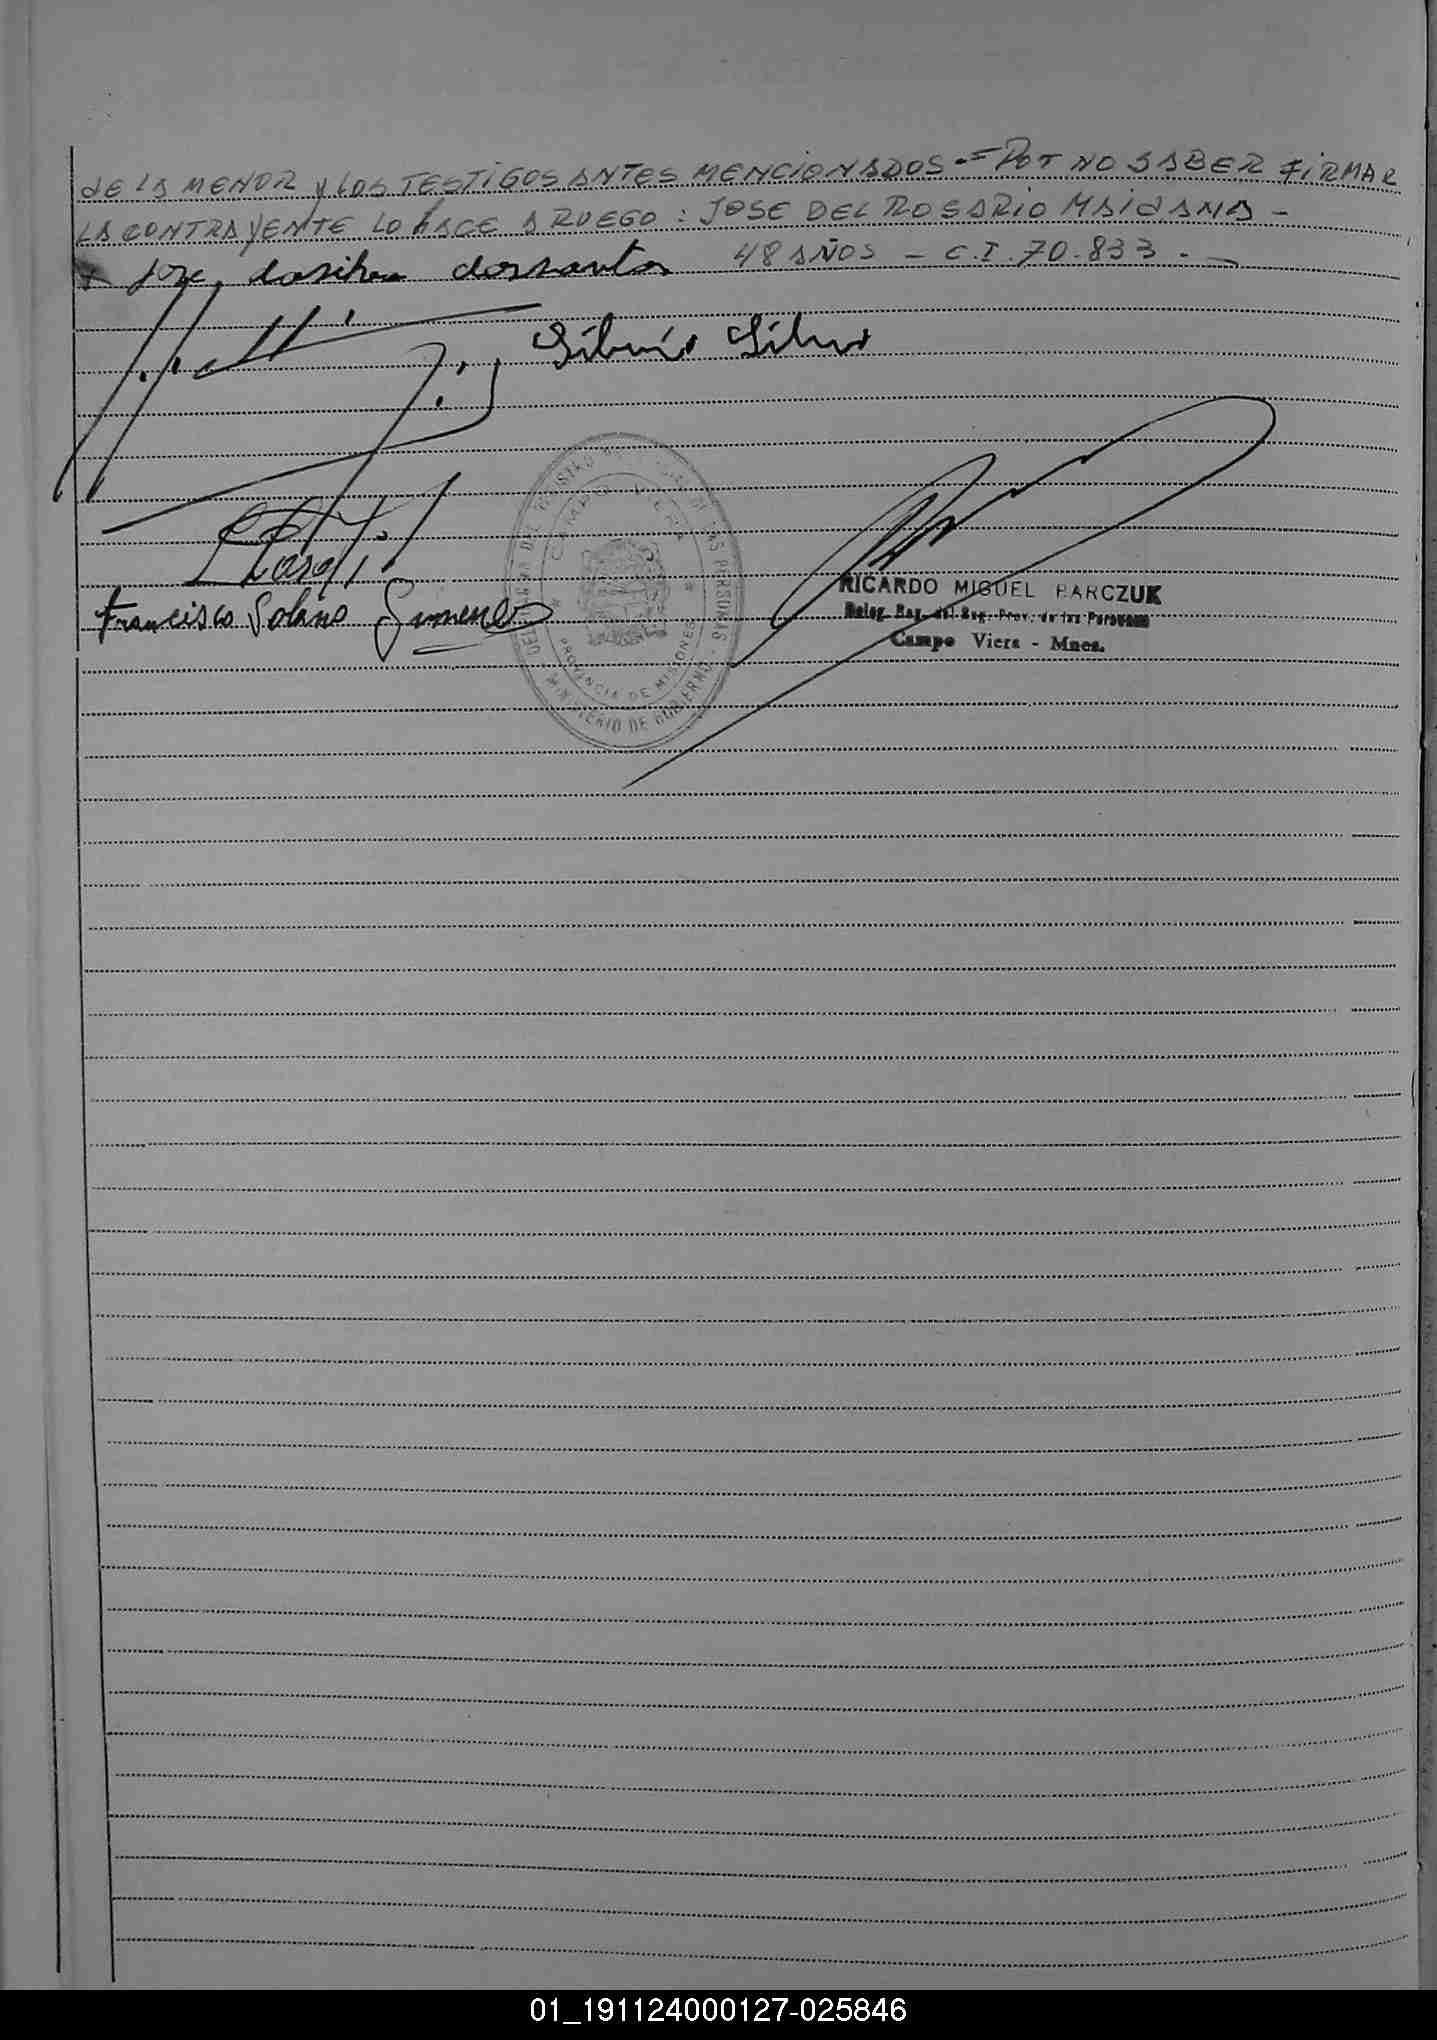 de la menor y los testigos antes mencionados.= Por no saber firmar
la contrayente lo hace a ruego: JOSE DEL ROSARIO MAIDANA -
Jose dasilva dossantos 48 años - C.I. 70.833. -
Silvio Silva
RICARDO MIGUEL PARCZUK
Deleg. Reg. del Reg. Prov. de las Personas
Campo Viera - Mnes.
Francisco Solano Gimenez
DEL REGISTRO DE LAS PERSONAS - MINISTERIO DE GOBIERNO -
CAMPO VIERA * PROVINCIA DE MISIONES *
01_191124000127-025846